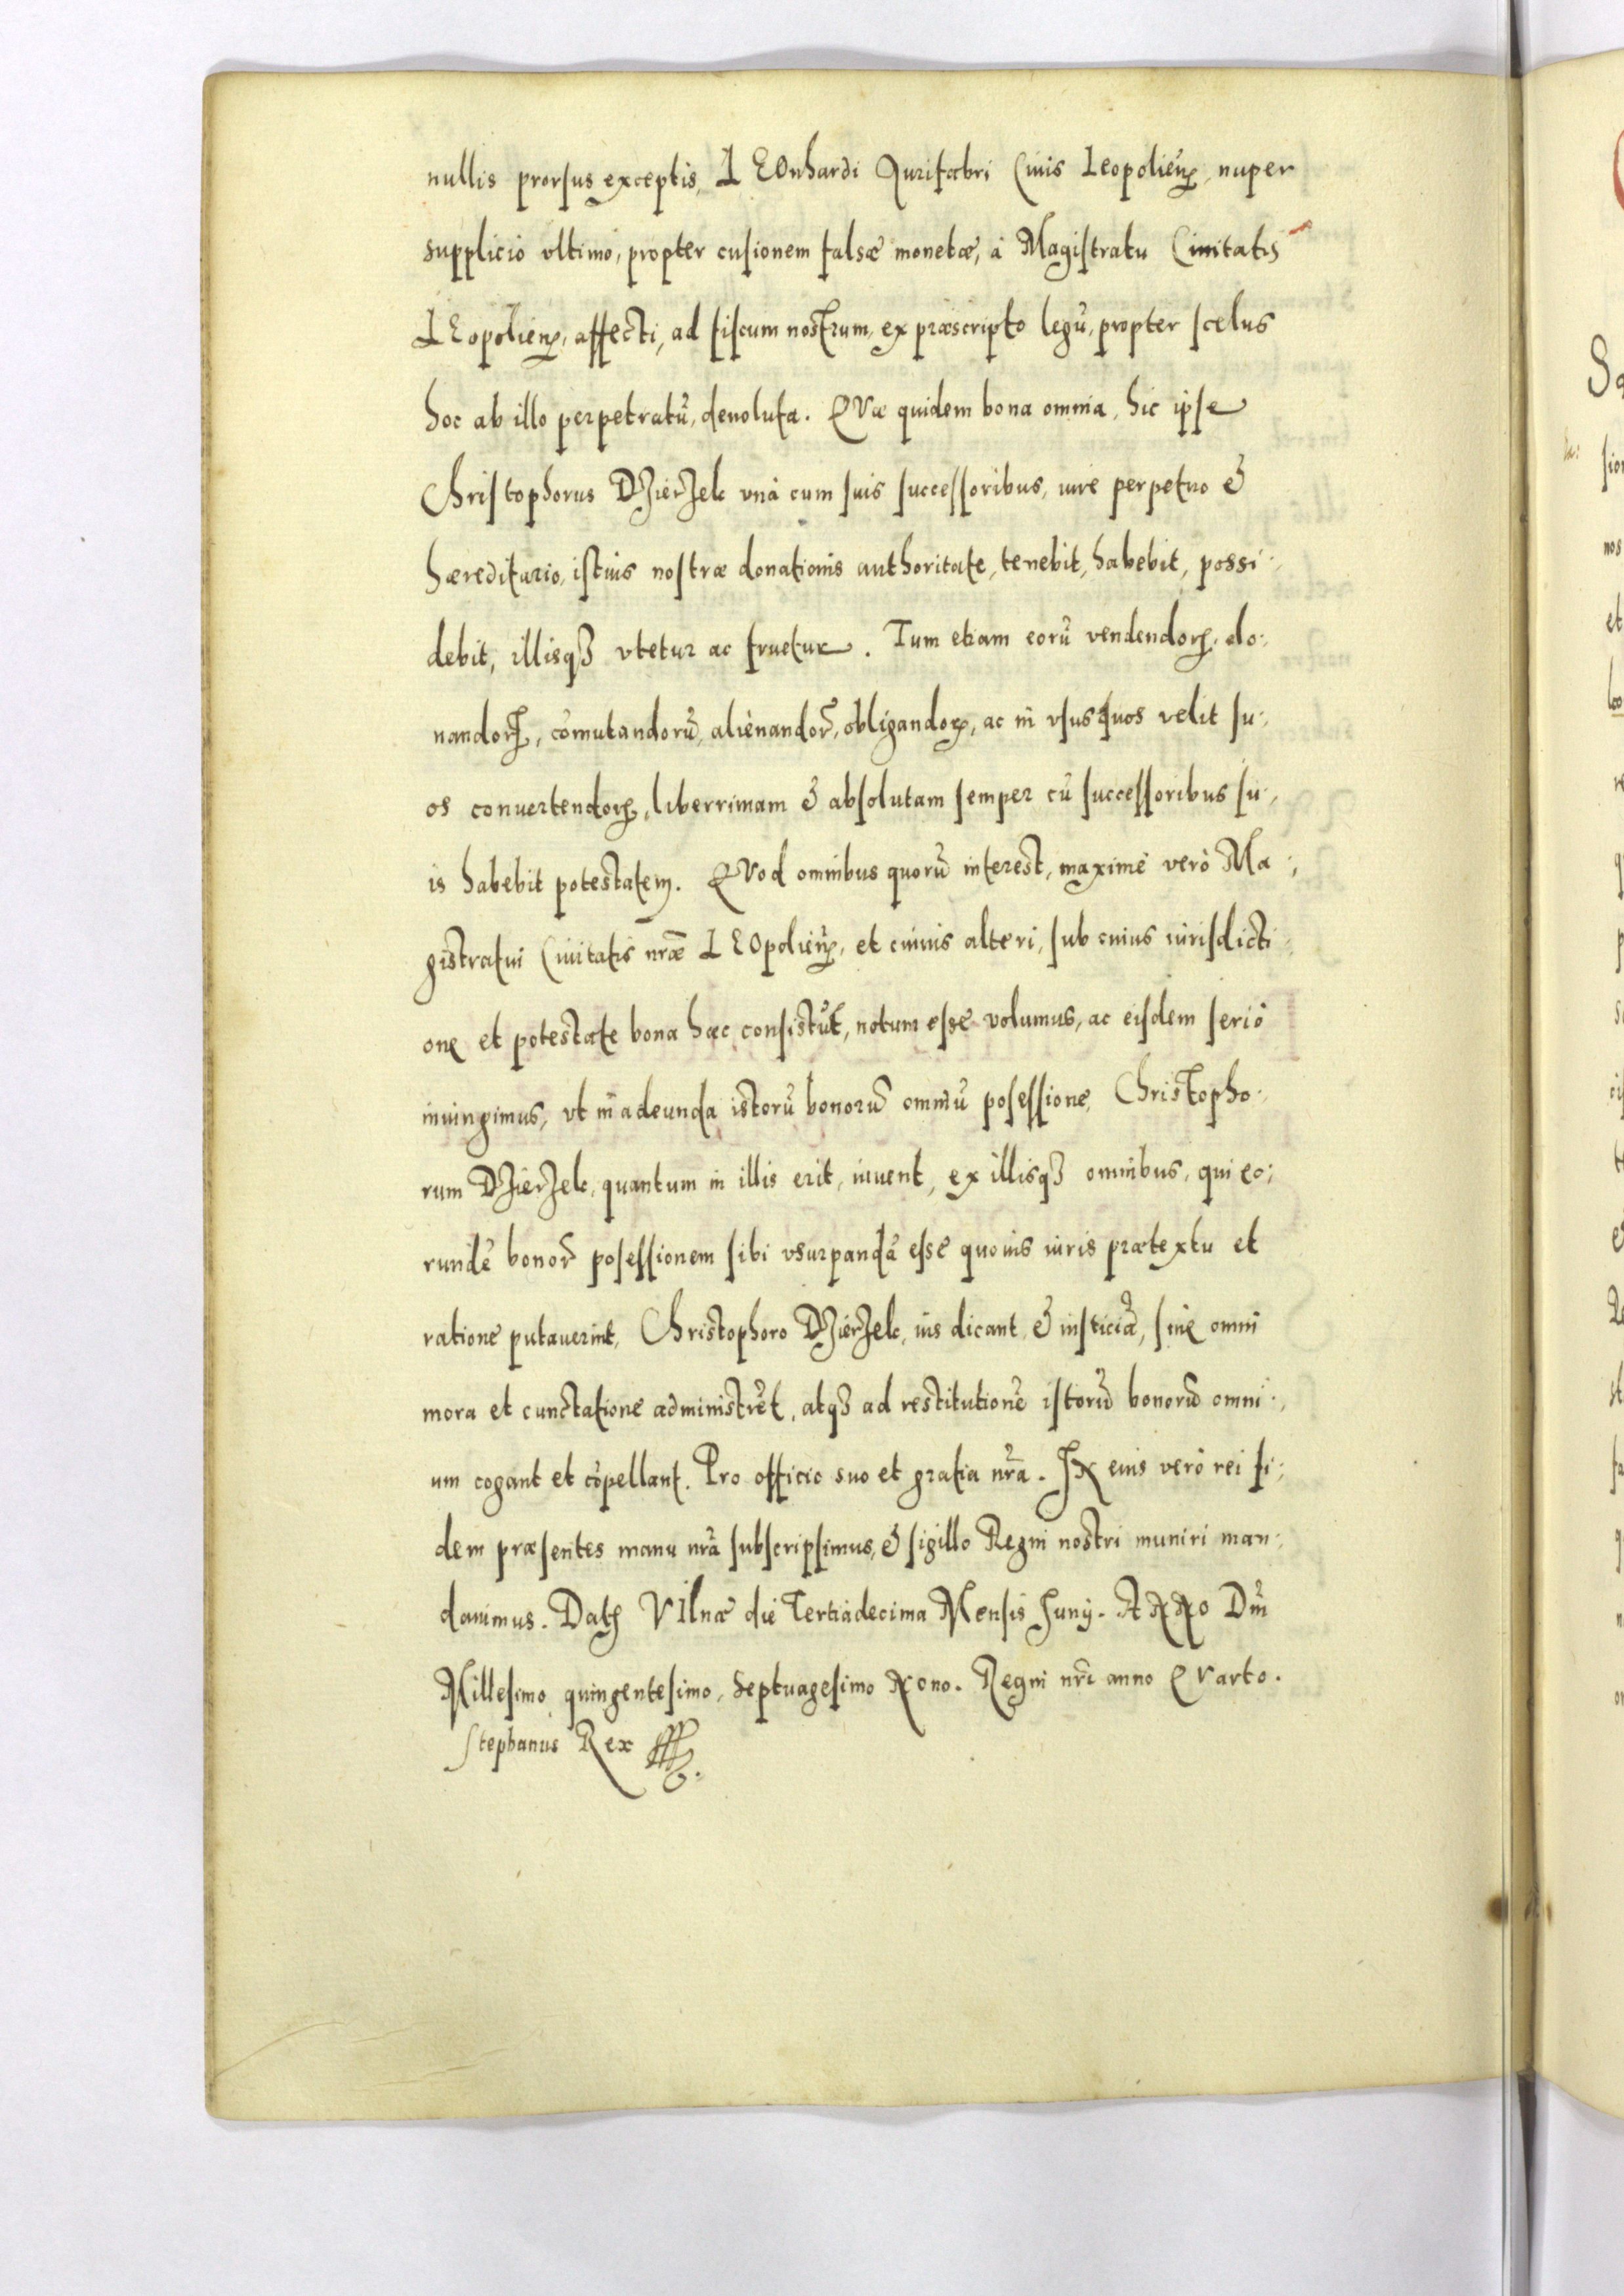 nullis prorsus exceptis, LEOnhardi Aurifabri Ciuis Leopolieñ, nuper
supplicio vltimo, propter cusionem falsæ monetæ, à Magistratu Ciuitatis
LEopolieñ, affecti, ad fiscum nostrum, ex præscripto legũ, propter scelus
hoc ab illo perpetratũ, deuoluta. QVæ quidem bona omnia, hic ipse
Christophorus DZierZek vnà cum suis successoribus, iure perpetuo &
hæreditario, istius nostræ donationis authoritate, tenebit, habebit, possi-
debit, illisqȝ vtetur ac fruetur. Tum etiam eorũ vendendorꝝ, do-
nandorꝝ, cõmutandorũ, alienandorꝝ, obligandorꝝ, ac in vsus quos velit su-
os conuertendorꝝ, liberrimam & absolutam semper cũ successoribus su-
is habebit potestatem. QVod omnibus quorũ interest, maximè verò Ma-
gistratui Ciuitatis nr̃æ LEOpolieñ, et cuiuis alteri, sub cuius iurisdicti-
one et potestate bona hæc consistũt, notum esse volumus, ac eisdem seriò
iniungimus, vt in adeunda istorũ bonorũ omniũ posessione, Christopho-
rum DZierZek, quantum in illis erit, iuuent, ex illisqȝ omnibus, qui eo-
rundẽ bonorꝝ posessionem sibi vsurpandã esse quouis iuris prætextu et
ratione putauerint, Christophoro DZierZek, ius dicant, & iusticiã, sine omni
mora et cunctatione administrẽt, atqȝ ad restitutionẽ istorũ bonorũ omni-
um cogant et cõpellant. Pro officio suo et gratia nr̃a. IN eius verò rei fi-
dem præsentes manu nr̃a subscripsimus, & sigillo Regni nostri muniri man-
dauimus. Datꝝ VIlnæ die Tertiadecima Mensis Iunij. ANNO Dñi
Millesimo quingentesimo, Septuagesimo Nono. Regni nr̃i anno QVarto.
Stephanus Rex